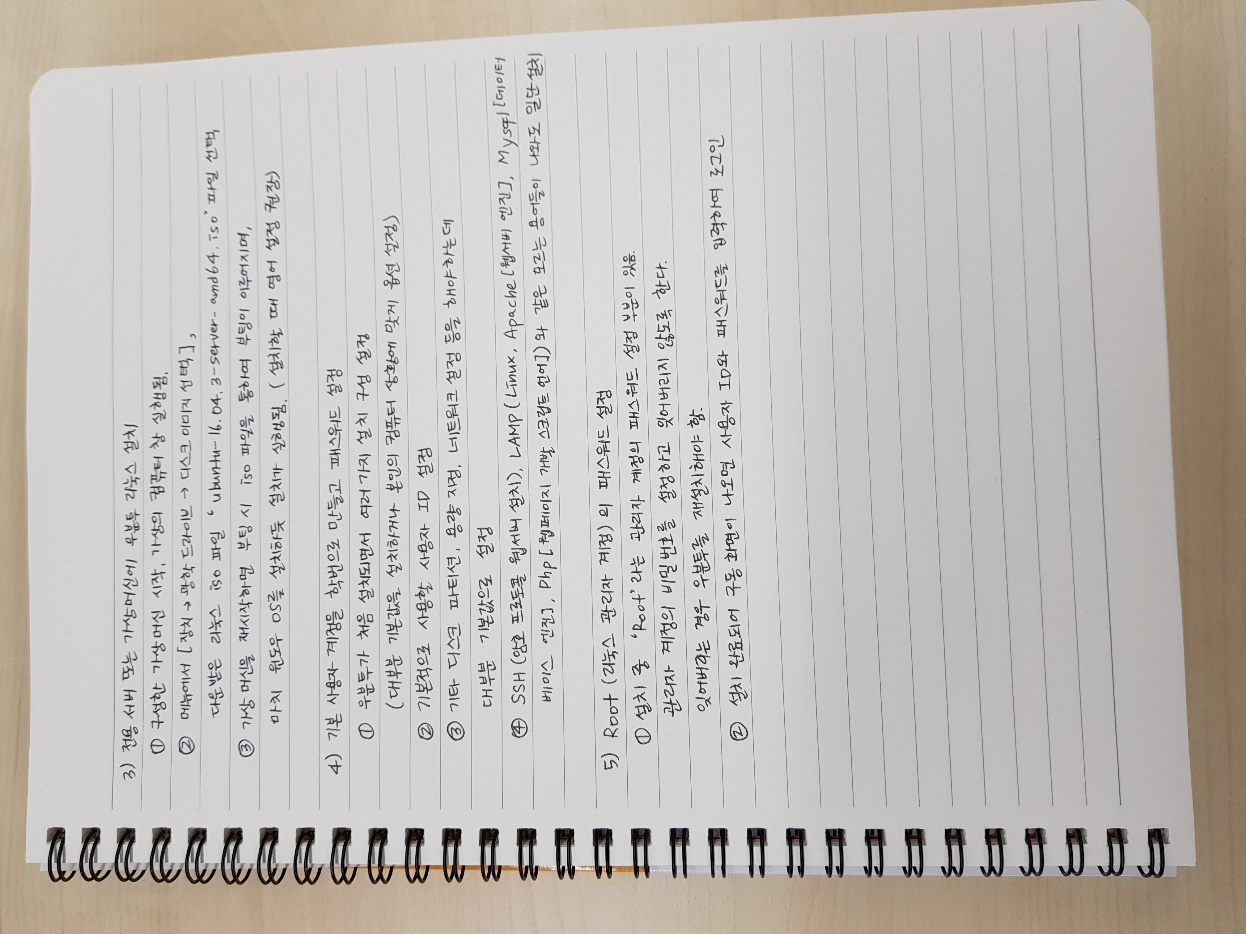 3) 전용 서버 목표 가상머신에 우분투 리눅스 설치
① 구성한 가상머신 시작, 가상의 컴퓨터 창 실행됨.
② 메뉴에서 [장치] → 광학 드라이브 → 디스크 이미지 선택],
다운받은 리눅스 iso 파일, ubuntu-16.04.3-server-amd64.iso. 파일 선택
③ 가상 머신을 재시작하여 부팅 시 iso 파일을 통하여 부팅이 이루어지며,
마치 우분투 OS를 설치하듯 설치가 실행됨. (설치할 때 언어 설정 구성)
4) 기본 사용자 계정을 선반적으로 만들고 패스워드 설정
① 우분투가 처음 설치되면서 여러가지 설치 설정
(대부분 기본값을 설치하나 본인의 컴퓨터 상황에 맞게 성정 설정)
② 기본적으로 사용할 사용자 ID 설정
③ 기타 디스크 파티션, 용량 지정, 네트워크 설정 등을 해야하는데
대부분 기본값으로 설정
④ SSH (암호 프로토콜 웹서버 설치), LAMP (Linux, Apache [웹서버 엔진], Mysql [데이터
베이스 엔진], Php [웹페이지 개발 스크립트 언어]) 와 같은 모르는 용어들이 나와도 일단 설치
5) Root (리눅스 관리자 계정) 의 패스워드 설정
① 설치 중 'Root' 라는 관리자 계정의 패스워드 설정 부분이 있음.
관리자 계정의 비밀번호를 설정하고 잊어버리지 않도록 한다.
잊어버리는 경우 우분투를 재설치해야 함.
② 설치 완료되어 구동 화면이 나오면 사용자 ID와 패스워드를 입력하여 로그인